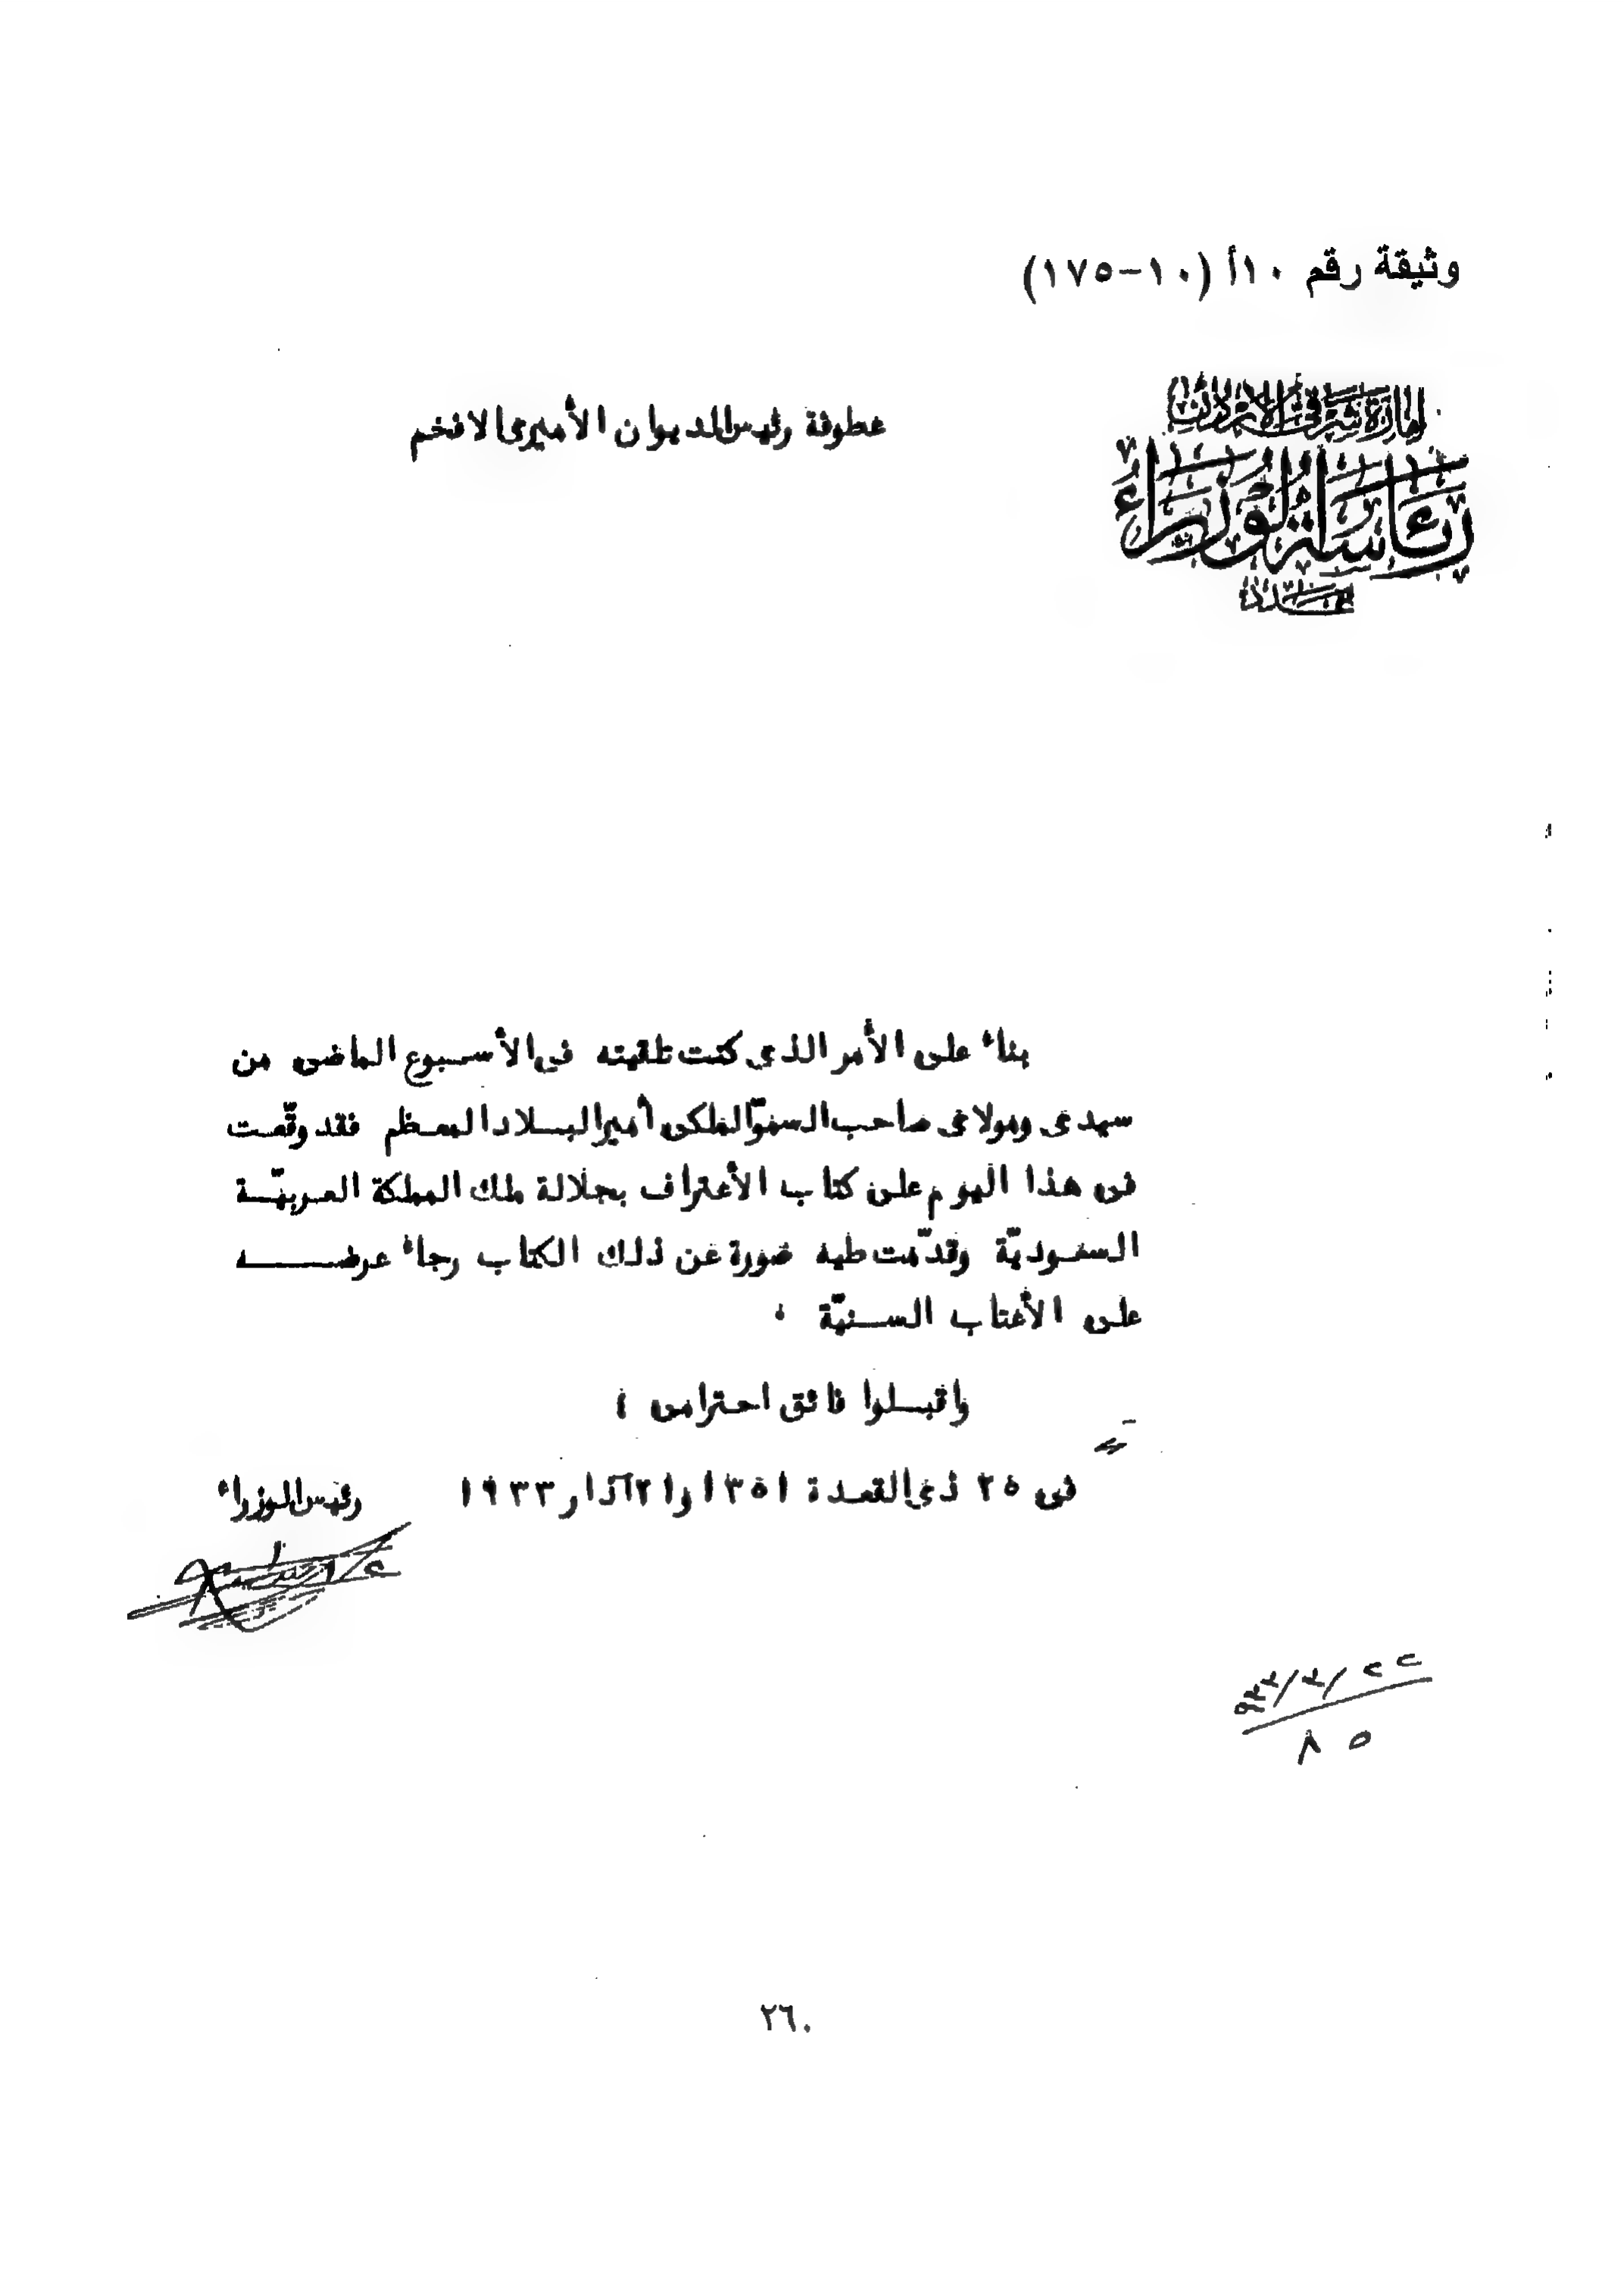 وثيقة رقم ١٠أ (١٠-١٧٥)
إمارة شرق الأردن
رئاسة الوزراء
عطوفة رئيس الديوان الأميرى الافخم
بناء على الأمر الذي كنت تلقيته في الأسبوع الماضى من
سيدى ومولاى صاحب السموّ الملكى أمير البلاد المعظم فقد وقّعت
فى هذا اليوم على كتاب الأعتراف بجلالة ملك المملكة العربيّة
السعوديّة وقدّمت طيه صورة عن ذلك الكتاب رجاء عرضه
على الأعتاب السنيّة ٠
واقبلوا فائق احترامى ؛
فى ٢٥ ذي القعدة ١٣٥١ و٢١ آذار ١٩٣٣
رئيس الوزراء
٢٢/٣/٩٣٣
٨٥
٢٦٠